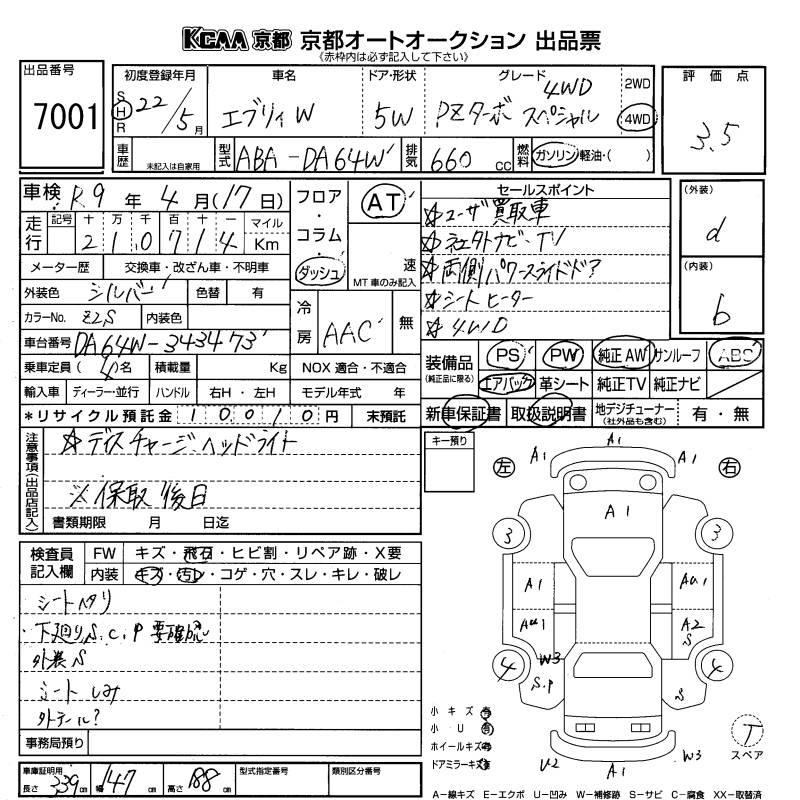 KCAA 京都 京都オートオークション 出品票
《赤枠内は必ず記入して下さい》
出品番号
7001
初度登録年月
S H R 22/5月
車名
エブリィW
ドア・形状
5W
グレード
4WD
PZターボ スペシャル
2WD
4WD
評価点
3.5
車歴
未記入は自家用
型式
ABA-DA64W
排気
660 cc
燃料
ガソリン・軽油・( )
車検 R.9 年 4 月(17日)
走行
記号 十 万 千 百 十 一 マイル
2 1 0 7 1 4 Km
メーター歴 交換車・改ざん車・不明車
外装色 シルバー 色替 有
カラーNo. Z2S 内装色
車台番号 DA64W-343473
乗車定員 (4)名 積載量 Kg
輸入車 ディーラー・並行 ハンドル 右H・左H
*リサイクル預託金 10010円 未預託
フロア・コラム・ダッシュ
AT
速
MT車のみ記入
冷房 AAC 無
NOX 適合・不適合
モデル年式 年
セールスポイント
☆ユーザ買取車
☆社外ナビ・TV
☆両側パワースライドドア
☆シートヒーター
☆4WD
(外装)
d
(内装)
b
装備品
(純正品に限る)
PS PW 純正AW サンルーフ ABS
エアバック 革シート 純正TV 純正ナビ
新車保証書 取扱説明書 地デジチューナー
(社外品も含む)
有・無
注意事項(出品店記入)
☆ディスチャージヘッドライト
※保取後日
書類期限 月 日迄
キー預り
左
右
A1 A1 A1
A1
3 3
A1 AU1
AU1 A2
S
4 W3 4
S.P S
U2 A1 W3
T
スペア
検査員記入欄
FW キズ・飛石・ヒビ割・リペア跡・X要
内装 キズ・汚レ・コゲ・穴・スレ・キレ・破レ
シートヘタリ
・下廻りS.C.P 要確認
外装S
シートしみ
事務局預り
小キズ有
小U有
ホイールキズ有
ドアミラーキズ有
車庫証明用
長さ 339cm 幅 147cm 高さ 188cm
型式指定番号
類別区分番号
A―線キズ E―エクボ U―凹み W―補修跡 S―サビ C―腐食 XX―取替済